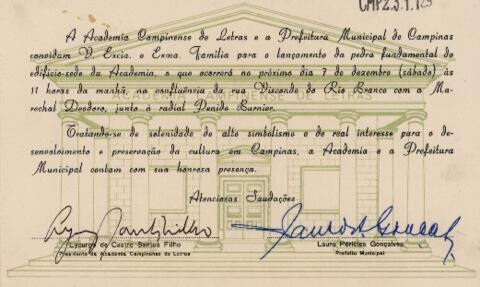 CMP2.3.1.129
A Academia Campinense de Letras e a Prefeitura Municipal de Campinas
convidam V. Excia. e Exma. Familia para o lançamento da pedra fundamental do
edifício-sede da Academia, o que ocorrerá no próximo dia 7 de dezembro (sábado) às
11 horas da manhã, na confluência da rua Visconde do Rio Branco com a Ma-
rechal Deodoro, junto à radial Penido Burnier.
ACADEMIA CAMPINENSE DE LETRAS
Tratando-se de solenidade de alto simbolismo e de real interesse para o de-
senvolvimento e preservação da cultura em Campinas, a Academia e a Prefeitura
Municipal contam com sua honrosa presença.
Atenciosas Saudações
Lycurgo de Castro Santos Filho
Presidente da Academia Campinense de Letras
Lauro Péricles Gonçalves
Prefeito Municipal